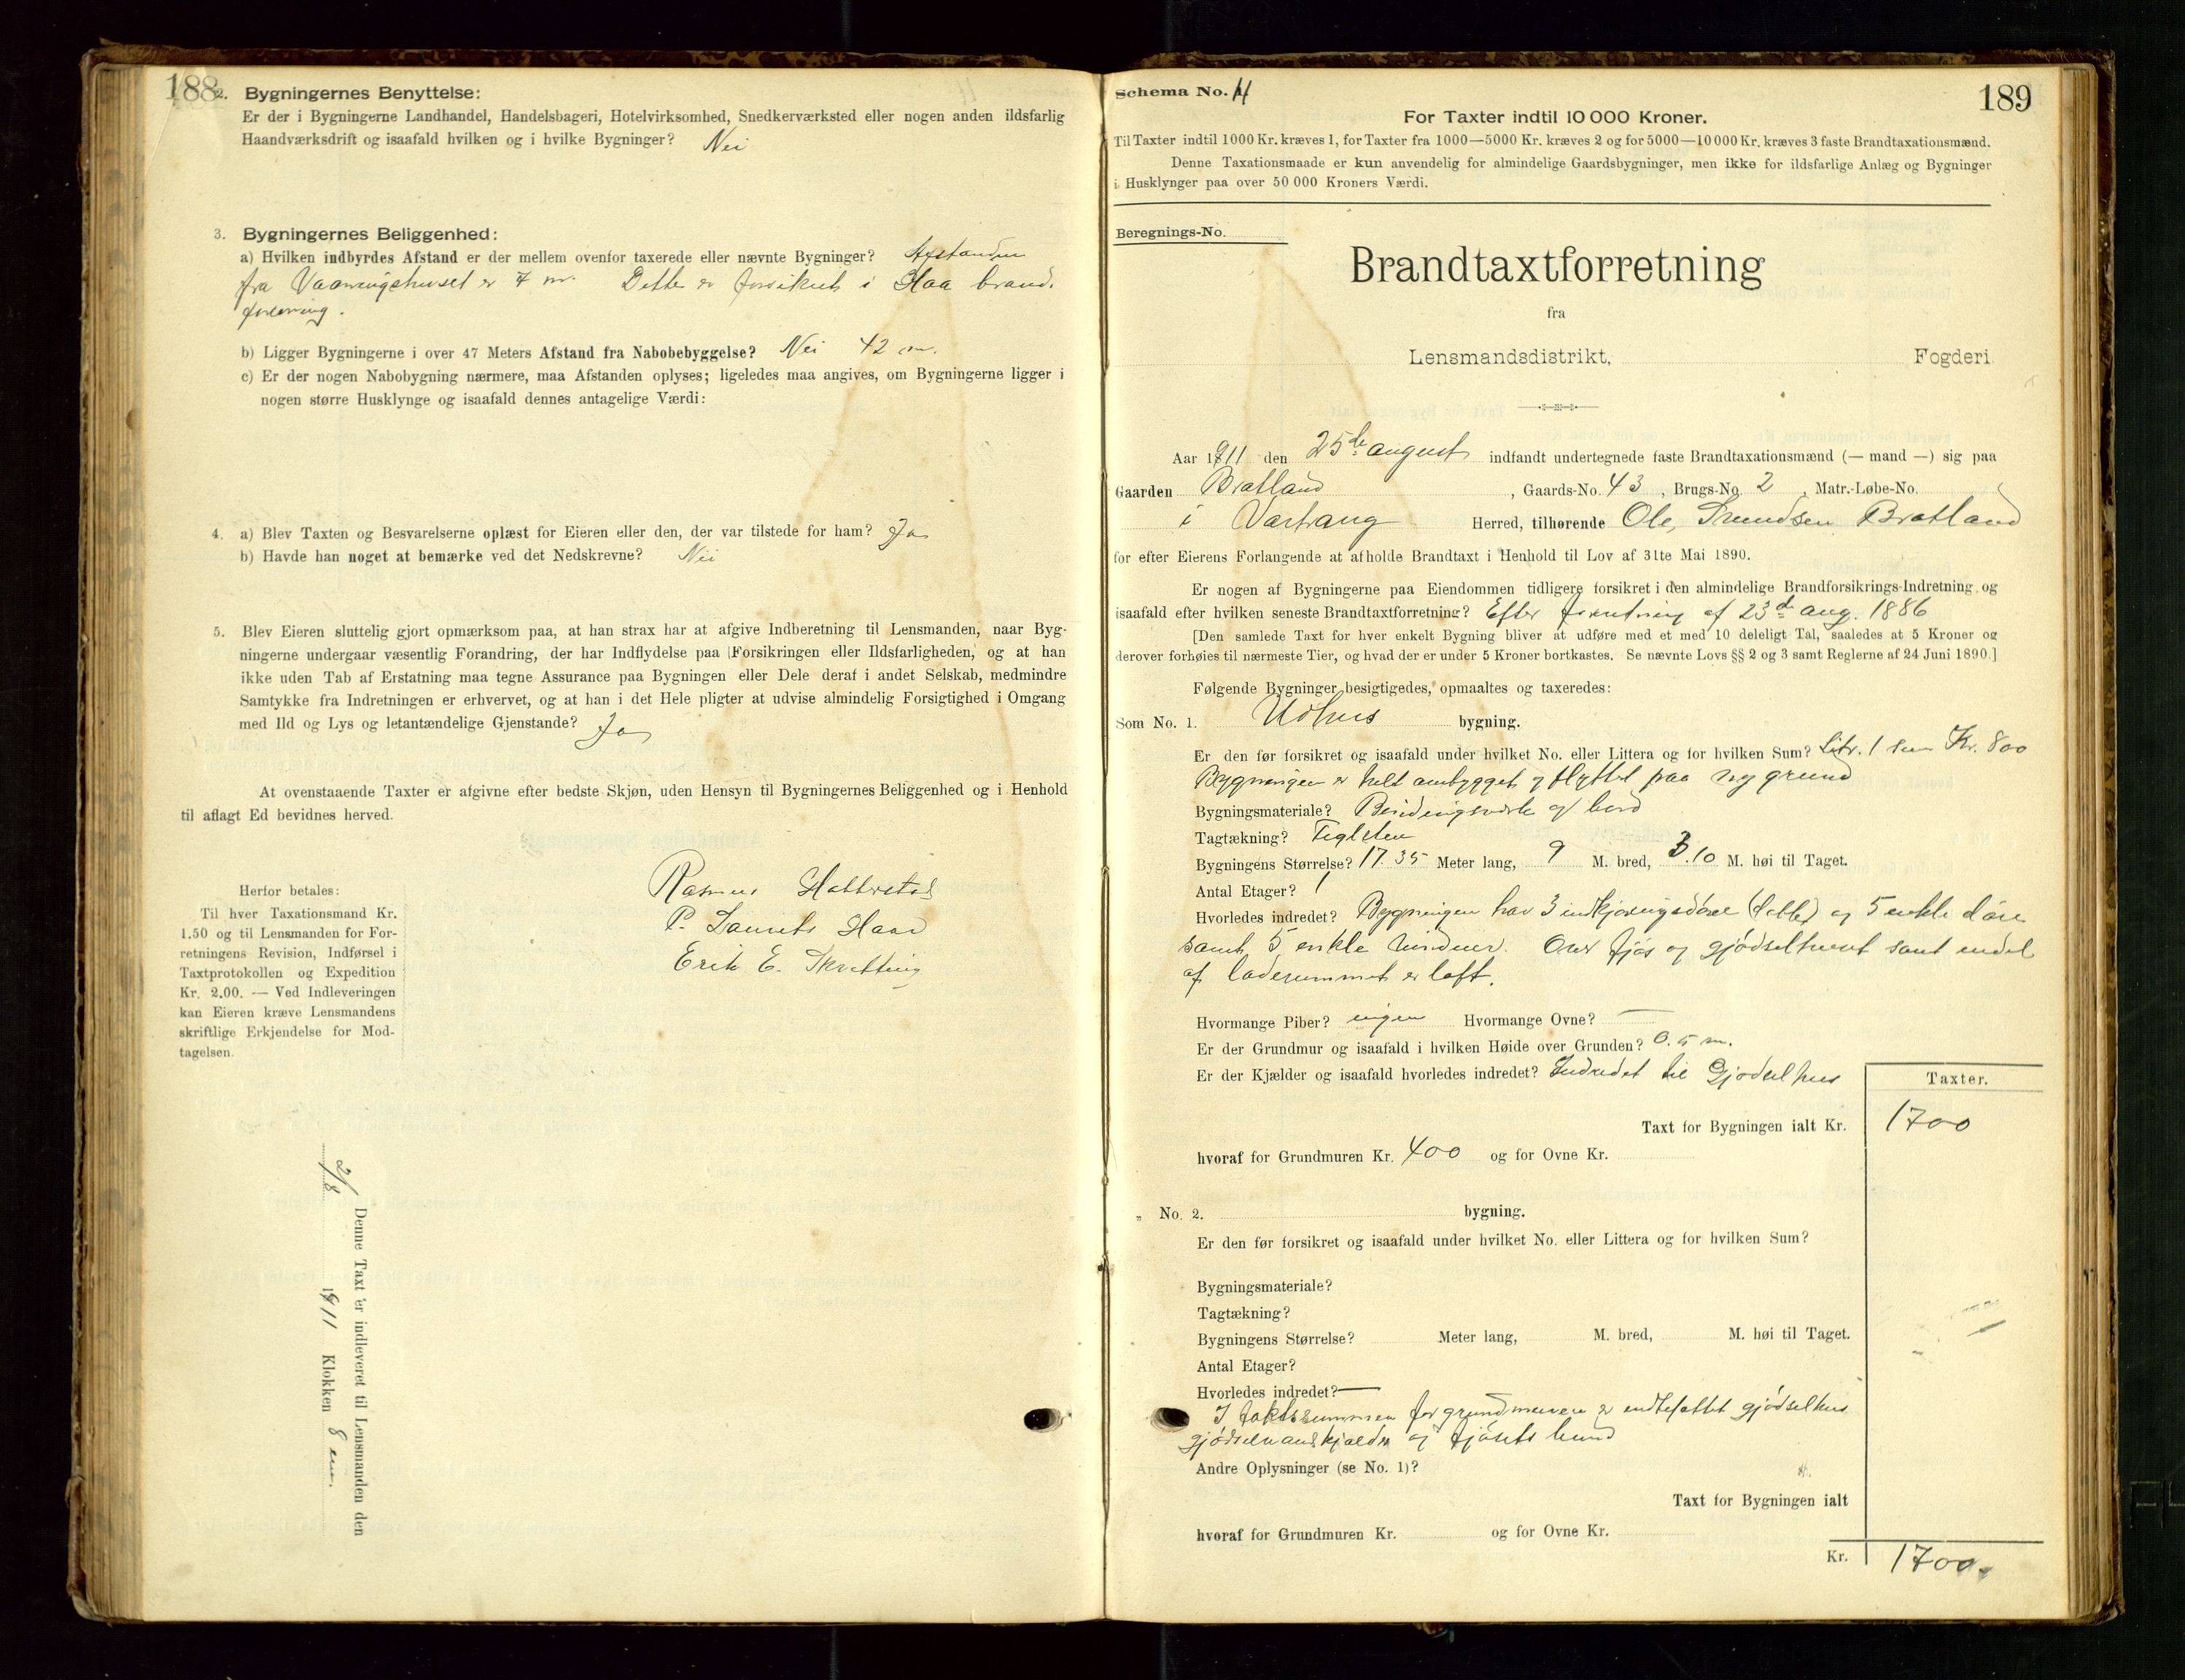 188
2. Bygningernes Benyttelse:
Er der i Bygningerne Landhandel, Handelsbageri, Hotelvirksomhed, Snedkerværksted eller nogen anden ildsfarlig
Haandværksdrift og isaafald hvilken og i hvilke Bygninger? Nei
3. Bygningernes Beliggenhed:
a) Hvilken indbyrdes Afstand er der mellem ovenfor taxerede eller nævnte Bygninger? Afstanden
fra Vaaningshuset er 7 m. Dette er forsikret i Haa brand.
forening.
b) Ligger Bygningerne i over 47 Meters Afstand fra Nabobebyggelse? Nei 42 m.
c) Er der nogen Nabobygning nærmere, maa Afstanden oplyses; ligeledes maa angives, om Bygningerne ligger i
nogen større Husklynge og isaafald dennes antagelige Værdi:
4. a) Blev Taxten og Besvarelserne oplæst for Eieren eller den, der var tilstede for ham? Ja
b) Havde han noget at bemærke ved det Nedskrevne? Nei
5. Blev Eieren sluttelig gjort opmærksom paa, at han strax har at afgive Indberetning til Lensmanden, naar Byg-
ningerne undergaar væsentlig Forandring, der har Indflydelse paa Forsikringen eller Ildsfarligheden, og at han
ikke uden Tab af Erstatning maa tegne Assurance paa Bygningen eller Dele deraf i andet Selskab, medmindre
Samtykke fra Indretningen er erhvervet, og at han i det Hele pligter at udvise almindelig Forsigtighed i Omgang
med Ild og Lys og letantændelige Gjenstande? Ja
At ovenstaaende Taxter er afgivne efter bedste Skjøn, uden Hensyn til Bygningernes Beliggenhed og i Henhold
til aflagt Ed bevidnes herved.
Rasmus
P. Laurits Haar
Erik E. Skretting
Herfor betales:
Til hver Taxationsmand Kr.
1.50 og til Lensmanden for For-
retningens Revision, Indførsel i
Taxtprotokollen og Expedition
Kr. 2.00. — Ved Indleveringen
kan Eieren kræve Lensmandens
skriftlige Erkjendelse for Mod-
tagelsen.
Denne Taxt er indleveret til Lensmanden den
2/8 1911 Klokken 8 em.
Schema No. 4
189
For Taxter indtil 10 000 Kroner.
Til Taxter indtil 1000 Kr. kræves 1, for Taxter fra 1000—5000 Kr. kræves 2 og for 5000—10 000 Kr. kræves 3 faste Brandtaxationsmænd.
Denne Taxationsmaade er kun anvendelig for almindelige Gaardsbygninger, men ikke for ildsfarlige Anlæg og Bygninger
i Husklynger paa over 50 000 Kroners Værdi.
Beregnings-No.
Brandtaxtforretning
fra
Lensmandsdistrikt, Fogderi
Aar 1911 den 25de august indfandt undertegnede faste Brandtaxationsmænd (— mand —) sig paa
Gaarden Bratland, Gaards-No. 43, Brugs-No. 2, Matr.-Løbe-No.
i Varhaug Herred, tilhørende Ole Bratland
for efter Eierens Forlangende at afholde Brandtaxt i Henhold til Lov af 31te Mai 1890.
Er nogen af Bygningerne paa Eiendommen tidligere forsikret i den almindelige Brandforsikrings-Indretning og
isaafald efter hvilken seneste Brandtaxtforretning? Efter forretning af 23de aug. 1886
[Den samlede Taxt for hver enkelt Bygning bliver at udføre med et med 10 deleligt Tal, saaledes at 5 Kroner og
derover forhøies til nærmeste Tier, og hvad der er under 5 Kroner bortkastes. Se nævnte Lovs §§ 2 og 3 samt Reglerne af 24 Juni 1890.]
Følgende Bygninger besigtigedes, opmaaltes og taxeredes:
Som No. 1. Udhus bygning.
Er den før forsikret og isaafald under hvilket No. eller Littera og for hvilken Sum? Litr. 1 sum Kr. 800
Bygningen er helt ombygget og flyttet paa ny grund
Bygningsmateriale? Bindingsverk af bord
Tagtækning? Teglsten
Bygningens Størrelse? 17.35 Meter lang, 9 M. bred, 3.10 M. høi til Taget.
Antal Etager? 1
Hvorledes indredet? Bygningen har 3 indkjøringsdøre (dobble) og 5 enkle døre
samt 5 enkle vinduer. Over fjøs og gjødselhuset samt endel
af laderummet er loft.
Hvormange Piber? ingen Hvormange Ovne? —
Er der Grundmur og isaafald i hvilken Høide over Grunden? 0.5 m.
Er der Kjælder og isaafald hvorledes indredet? Indredet til Gjødselhus
Taxter.
Taxt for Bygningen ialt Kr. 1700
hvoraf for Grundmuren Kr. 400 og for Ovne Kr.
„ No. 2. bygning.
Er den før forsikret og isaafald under hvilket No. eller Littera og for hvilken Sum?
Bygningsmateriale?
Tagtækning?
Bygningens Størrelse? Meter lang, M. bred, M. høi til Taget.
Antal Etager?
Hvorledes indredet? —
I takstsummen for grundmuren er indbefattet gjødselhus
kjælder og fjøsets bund
Andre Oplysninger (se No. 1)?
Taxt for Bygningen ialt
hvoraf for Grundmuren Kr. og for Ovne Kr.
Kr. 1700.